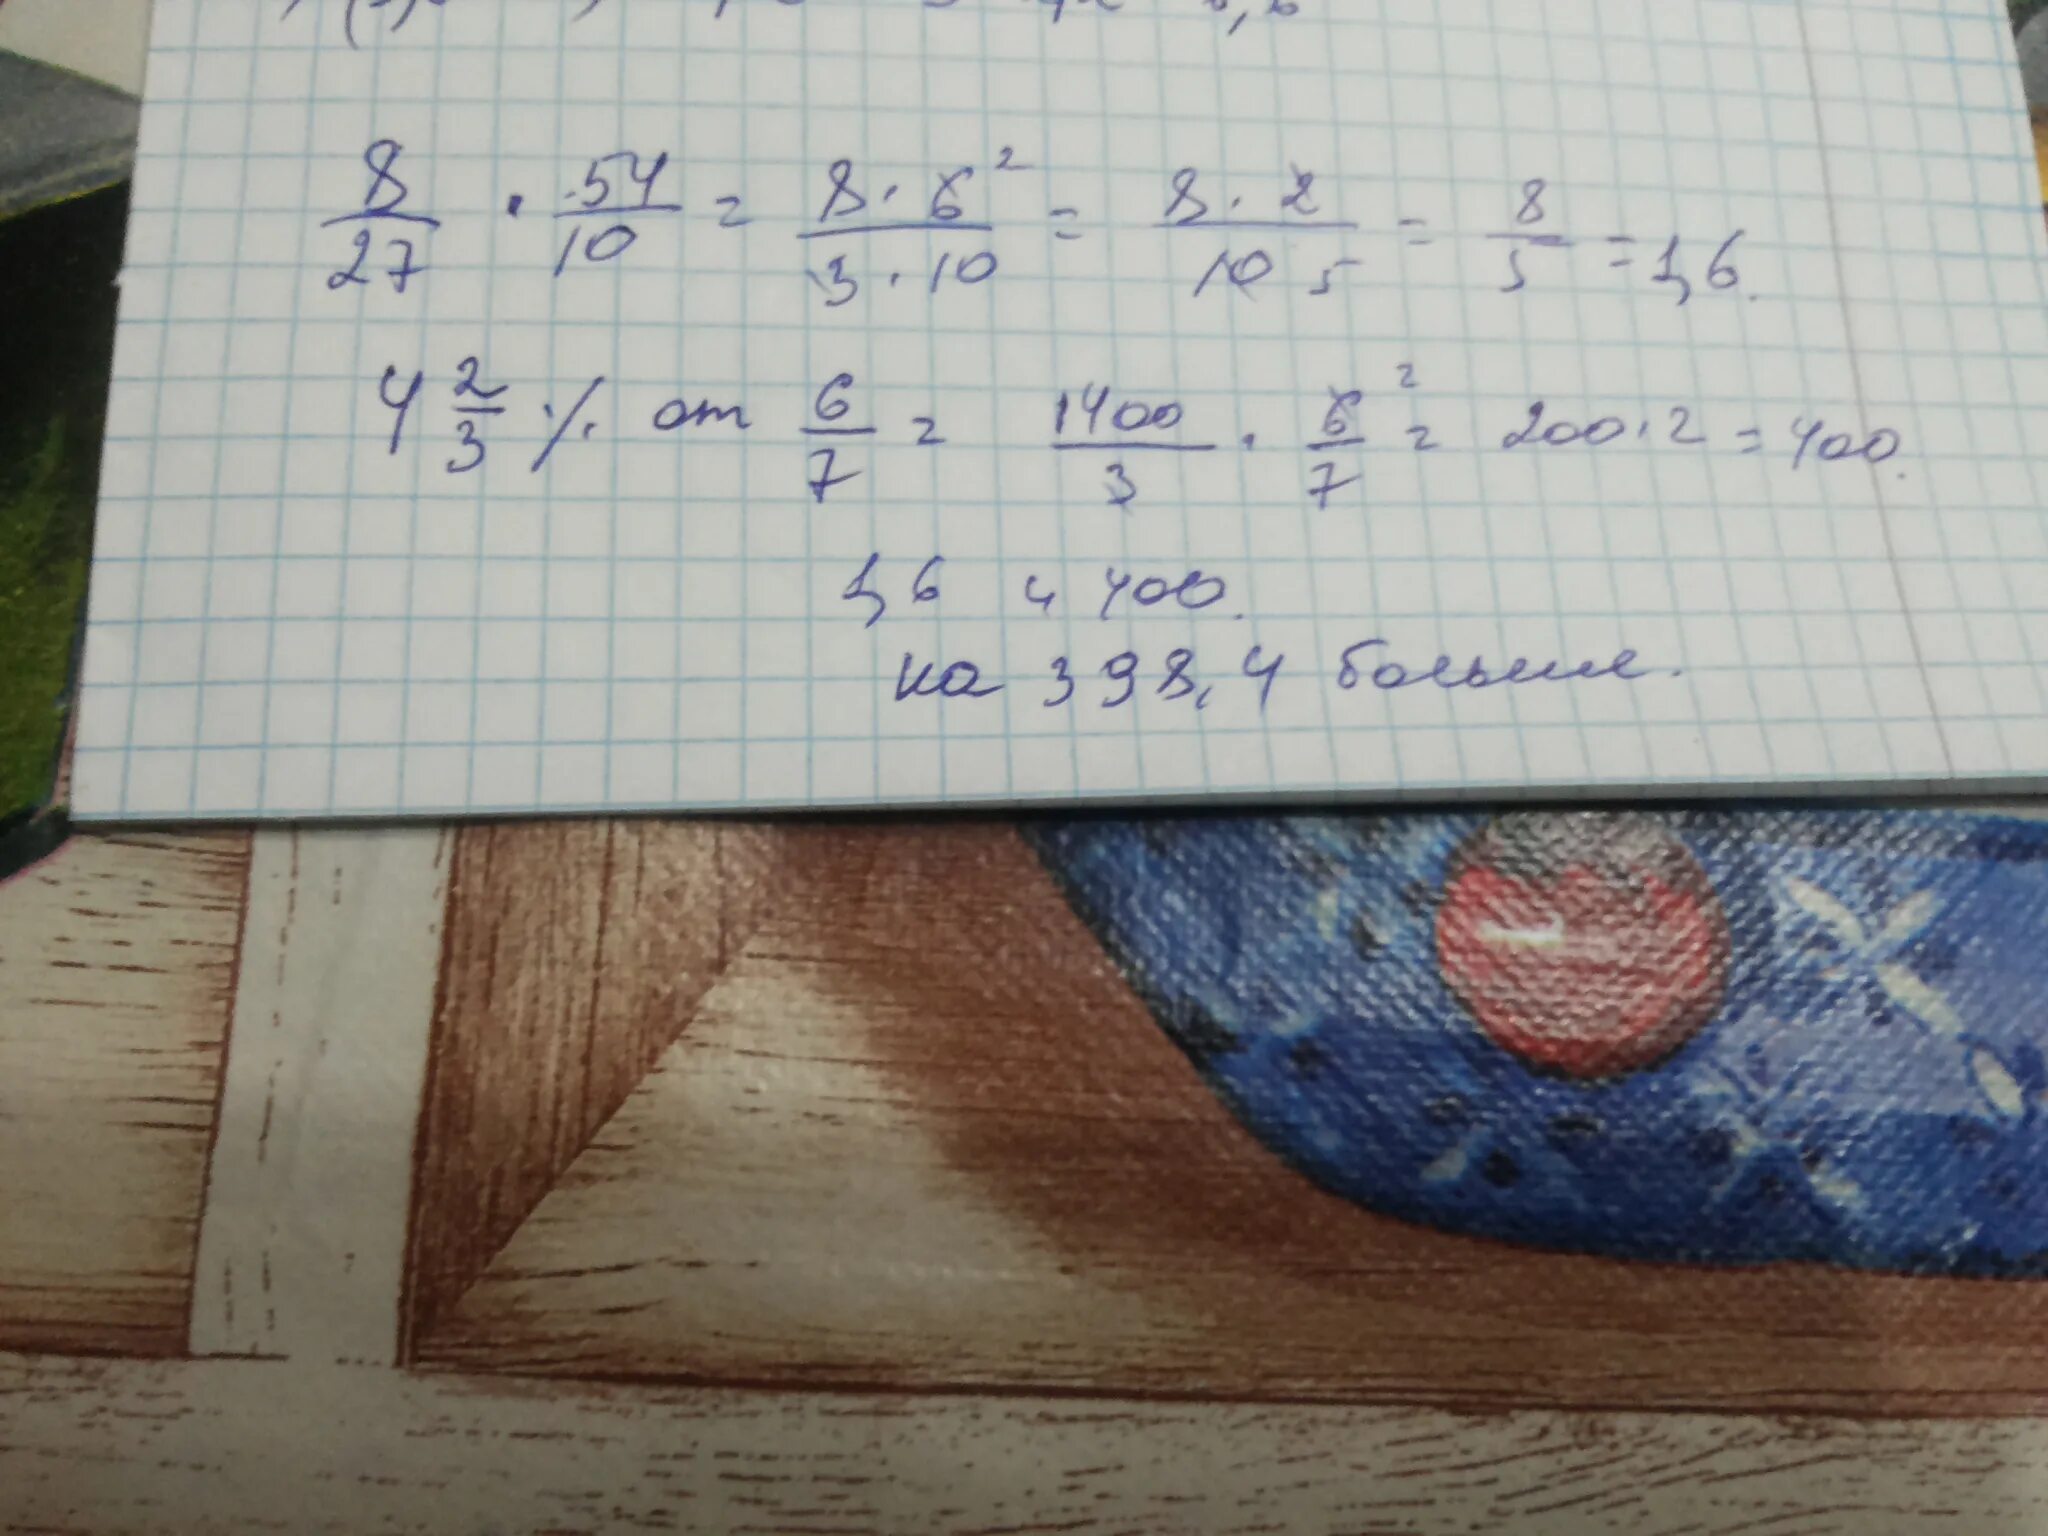 8/27 · 54/10 = 8 · 6 2/3 · 10 = 8 · 2/10 5 = 8/5 = 1,6.
4 2/3 % от 6/7 = 1400/3 · 6 2/7 = 200 · 2 = 400.
1,6 и 400.
на 398,4 больше.